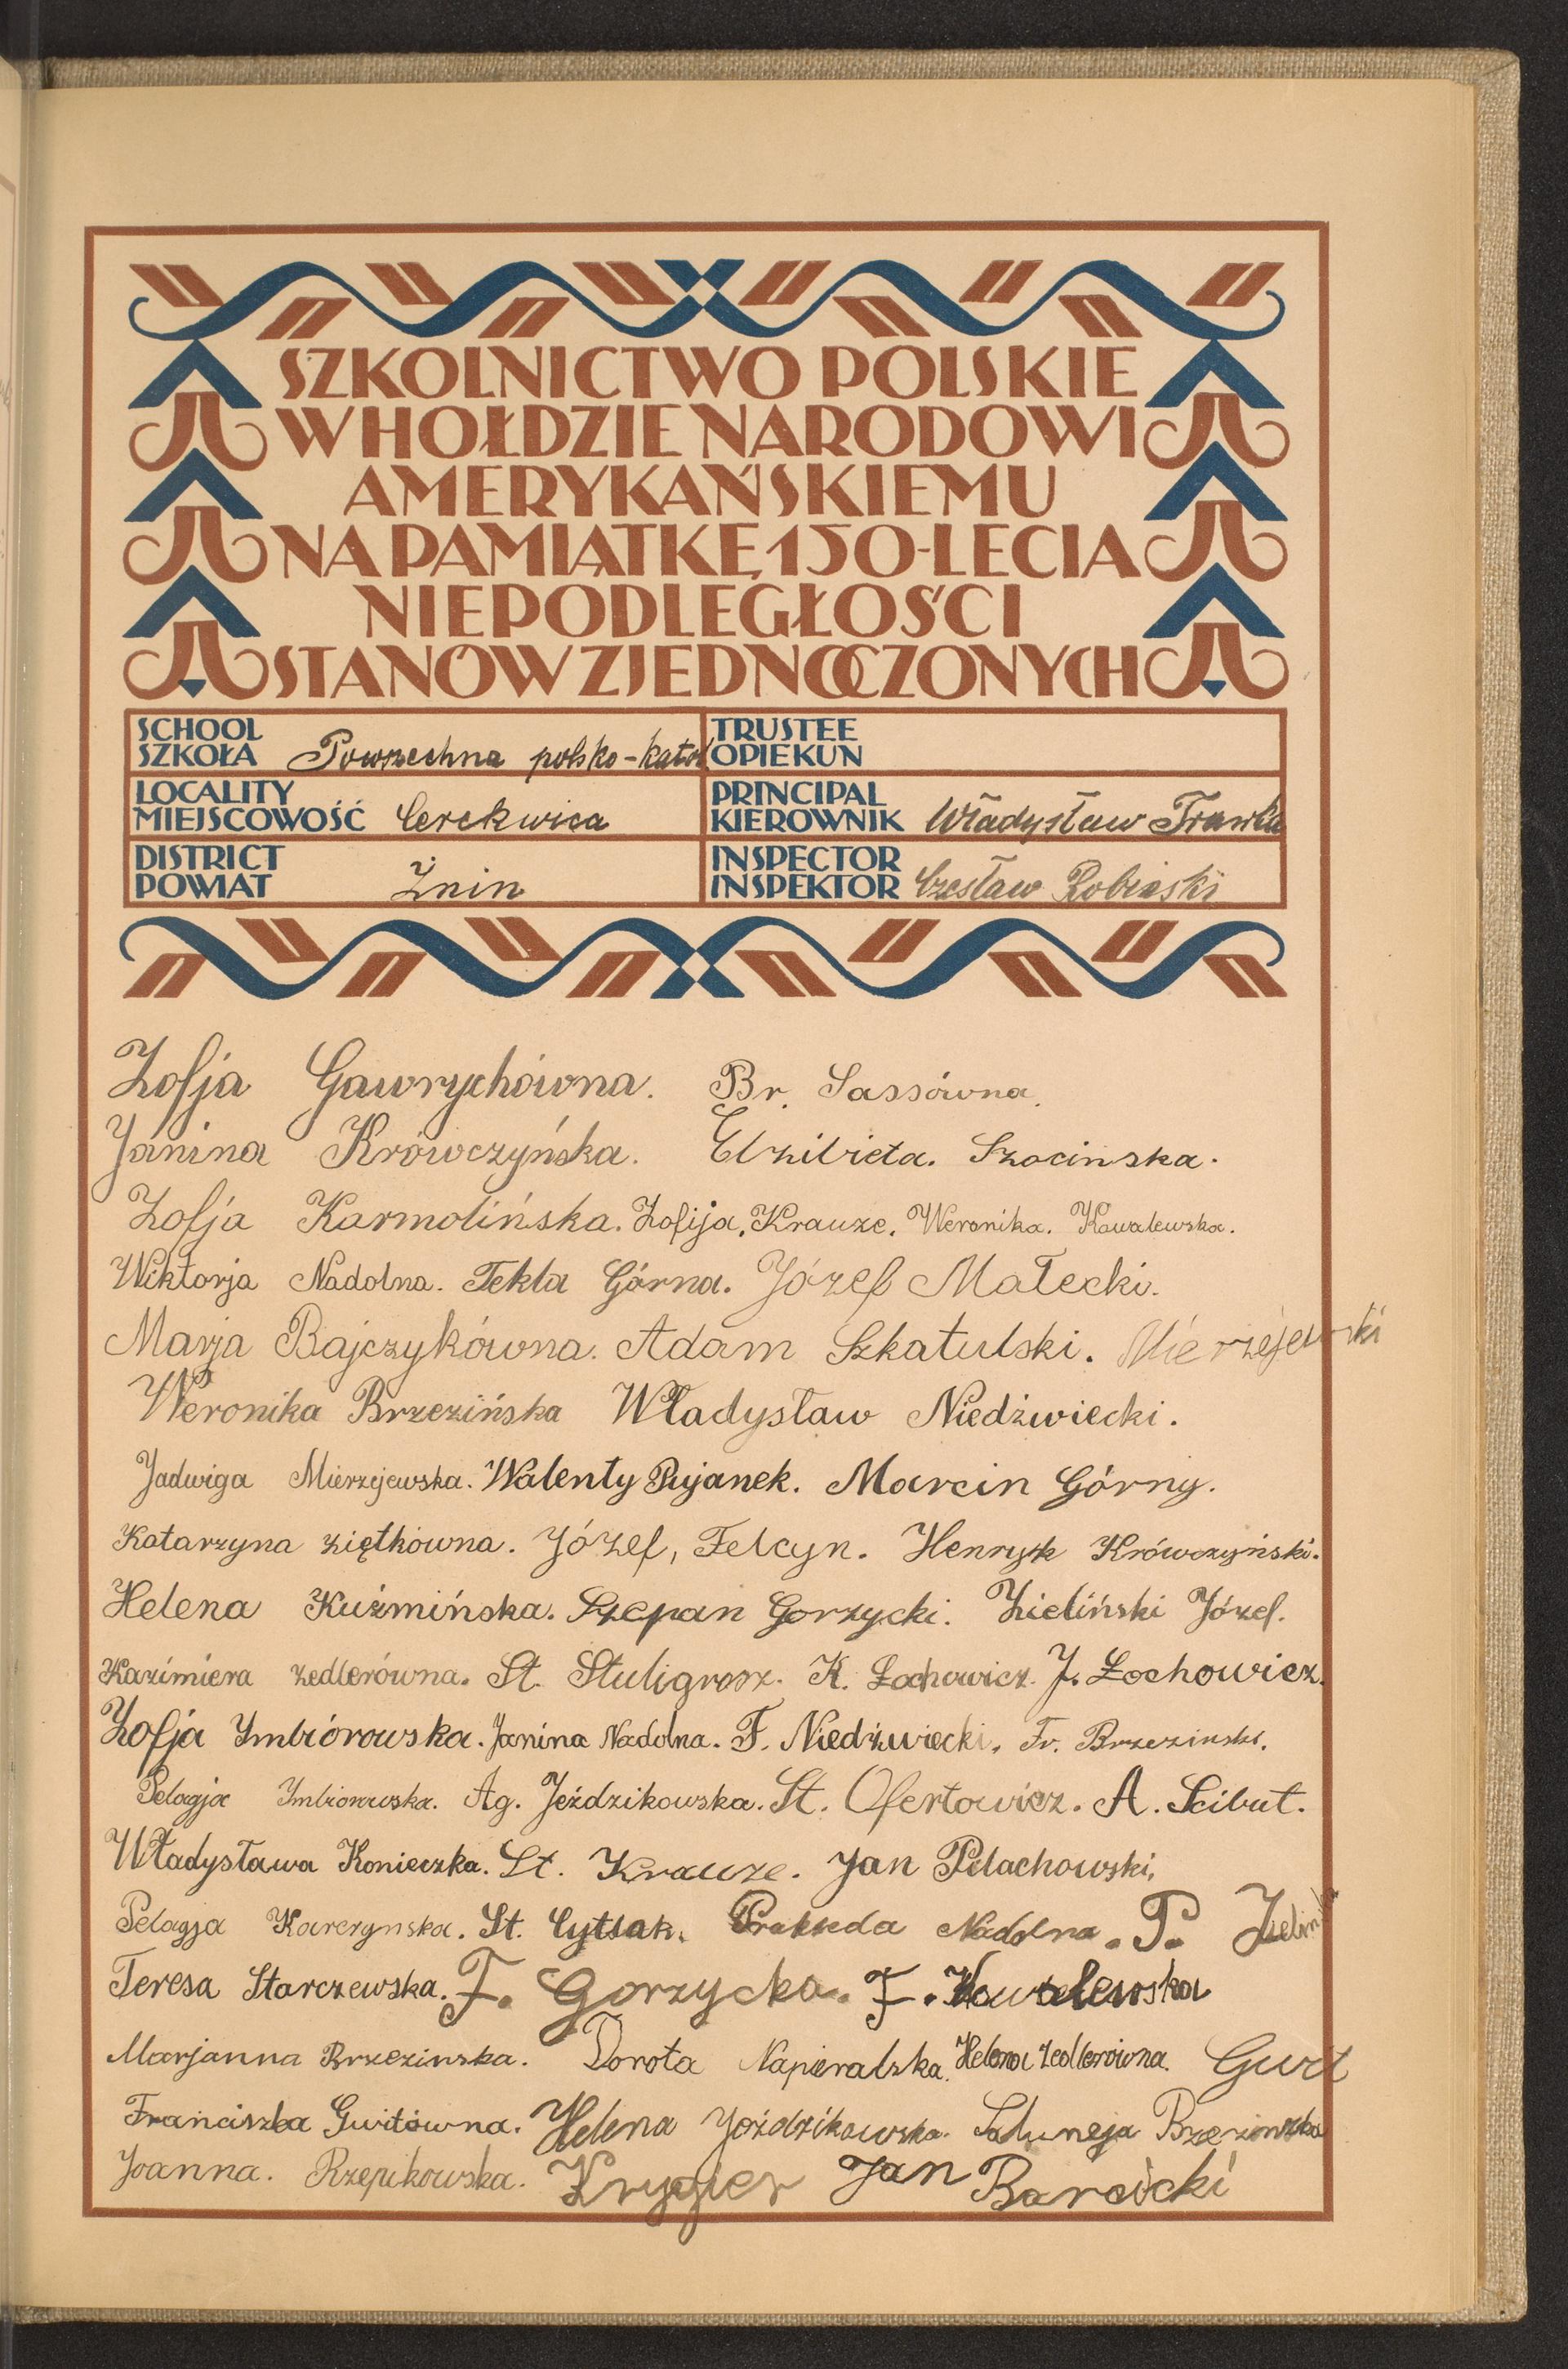 SZKOLNICTWO POLSKIE
W HOŁDZIE NARODOWI
AMERYKAŃSKIEMU
NA PAMIĄTKĘ 150-LECIA
NIEPODLEGŁOŚCI
STANÓW ZJEDNOCZONYCH
SCHOOL
SZKOŁA Powszechna polsko-katol.
TRUSTEE
OPIEKUN
LOCALITY
MIEJSCOWOŚĆ Cerekwica
PRINCIPAL
KIEROWNIK Władysław Trawka
DISTRICT
POWIAT Żnin
INSPECTOR
INSPEKTOR Czesław Robiński
Zofja Gawrychówna. Br. Sassówna.
Janina Krówczyńska. Elzibieta. Szocinska.
Zofja Karmolińska. Zofija. Krauze. Weronika. Kowalewska.
Wiktorja Nadolna. Tekla Górna. Józef Małecki.
Marja Bajczykówna. Adam Szkatulski. Mierzejewski
Weronika Brzezińska Władysław Niedźwiecki.
Jadwiga Mierzejewska. Walenty Pujanek. Marcin Górny.
Katarzyna Ziętkówna. Józef, Felcyn. Henryk Krówczyński.
Helena Kuźmińska. Szczepan Gorzycki. Zieliński Józef.
Kazimiera Zedlerówna. St. Stuligrosz. K. Łochowicz. J. Łochowicz.
Zofja Ymbiórowska. Janina Nadolna. F. Niedźwiecki. Fr. Brzezinski.
Pelagja Ymbiorowska. Ag. Jeździkowska. St. Ofertowicz. A. Scibut.
Władysława Konieczka. St. Krauze. Jan Pelachowski.
Pelagja Karczynska. St. Cytlak. Prakseda Nadolna. P.
Teresa Starczewska. F. Gorzycka. F. Kowalewska
Marjanna Brzezinska. Dorota Napieralska. Helena Zedlerówna. Gurt
Franciszka Gwitówna. Helena Jeździkowska. Brzezinska
Joanna. Rzepikowska. Krygier Jan Barcicki